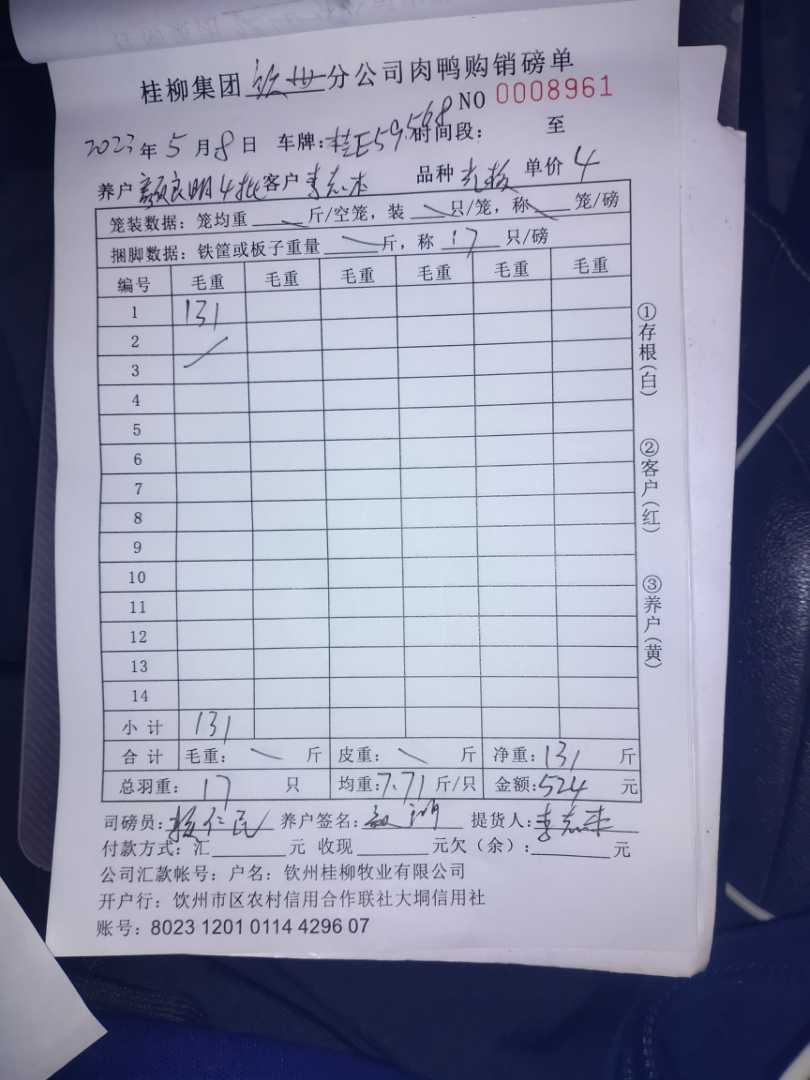 桂柳集团 钦州 分公司肉鸭购销磅单
NO 0008961
2023年5月8日 车牌:桂E59568 时间段: 至
养户 颜良明4批 客户 李志杰 品种 单价 4
笼装数据:笼均重 斤/空笼,装 只/笼,称 笼/磅
捆脚数据:铁筐或板子重量 斤,称 17 只/磅
编号 毛重 毛重 毛重 毛重 毛重 毛重
1 131
2
3
4
5
6
7
8
9
10
11
12
13
14
小计 131
合计 毛重: 斤 皮重: 斤 净重:131 斤
总羽重: 17 只 均重:7.71 斤/只 金额:524 元
司磅员: 养户签名: 提货人:李志杰
付款方式:汇 元 收现 元欠(余): 元
公司汇款帐号:户名:钦州桂柳牧业有限公司
开户行:钦州市区农村信用合作联社大垌信用社
账号:8023 1201 0114 4296 07
①存根(白)
②客户(红)
③养户(黄)